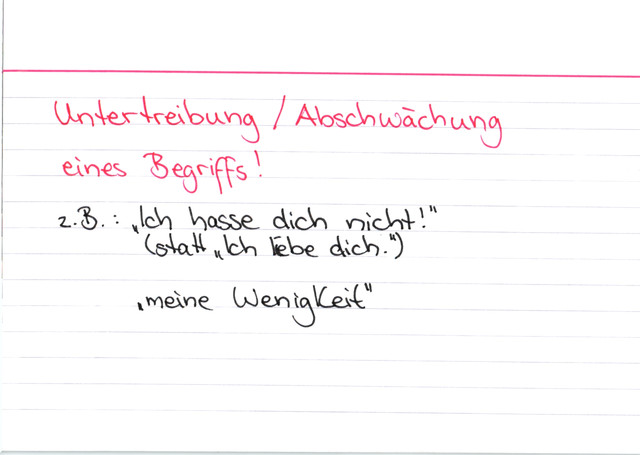 Untertreibung / Abschwächung
eines Begriffs!
z.B.: „Ich hasse dich nicht!"
(statt „Ich liebe dich.")
„meine Wenigkeit"